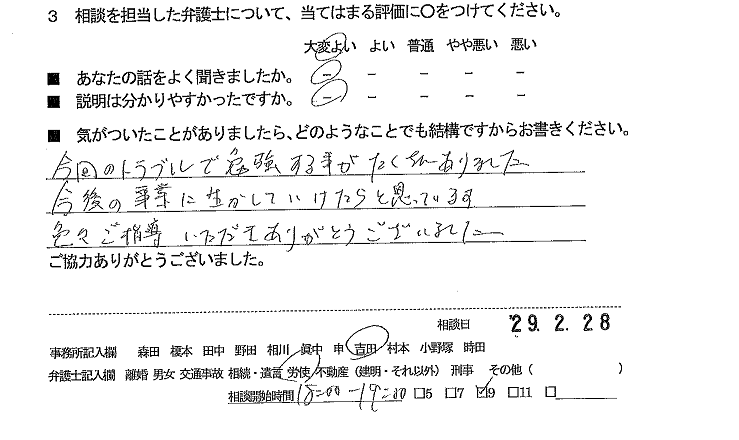 3 相談を担当した弁護士について、当てはまる評価に〇をつけてください。
大変よい よい 普通 やや悪い 悪い
■ あなたの話をよく聞きましたか。 － － － － －
■ 説明は分かりやすかったですか。 － － － － －
■ 気がついたことがありましたら、どのようなことでも結構ですからお書きください。
今回のトラブルで勉強する事がたくさんありました
今後の事業に生かしていけたらと思っています
色々ご指導いただきありがとうございました
ご協力ありがとうございました。
相談日 '29.2.28
事務所記入欄 森田 榎本 田中 野田 相川 眞中 申 吉田 村本 小野塚 時田
弁護士記入欄 離婚 男女 交通事故 相続・遺言 労使 不動産（建明・それ以外） 刑事 その他（ ）
相談開始時間 18:00－19:00 □5 □7 ☑9 □11 □